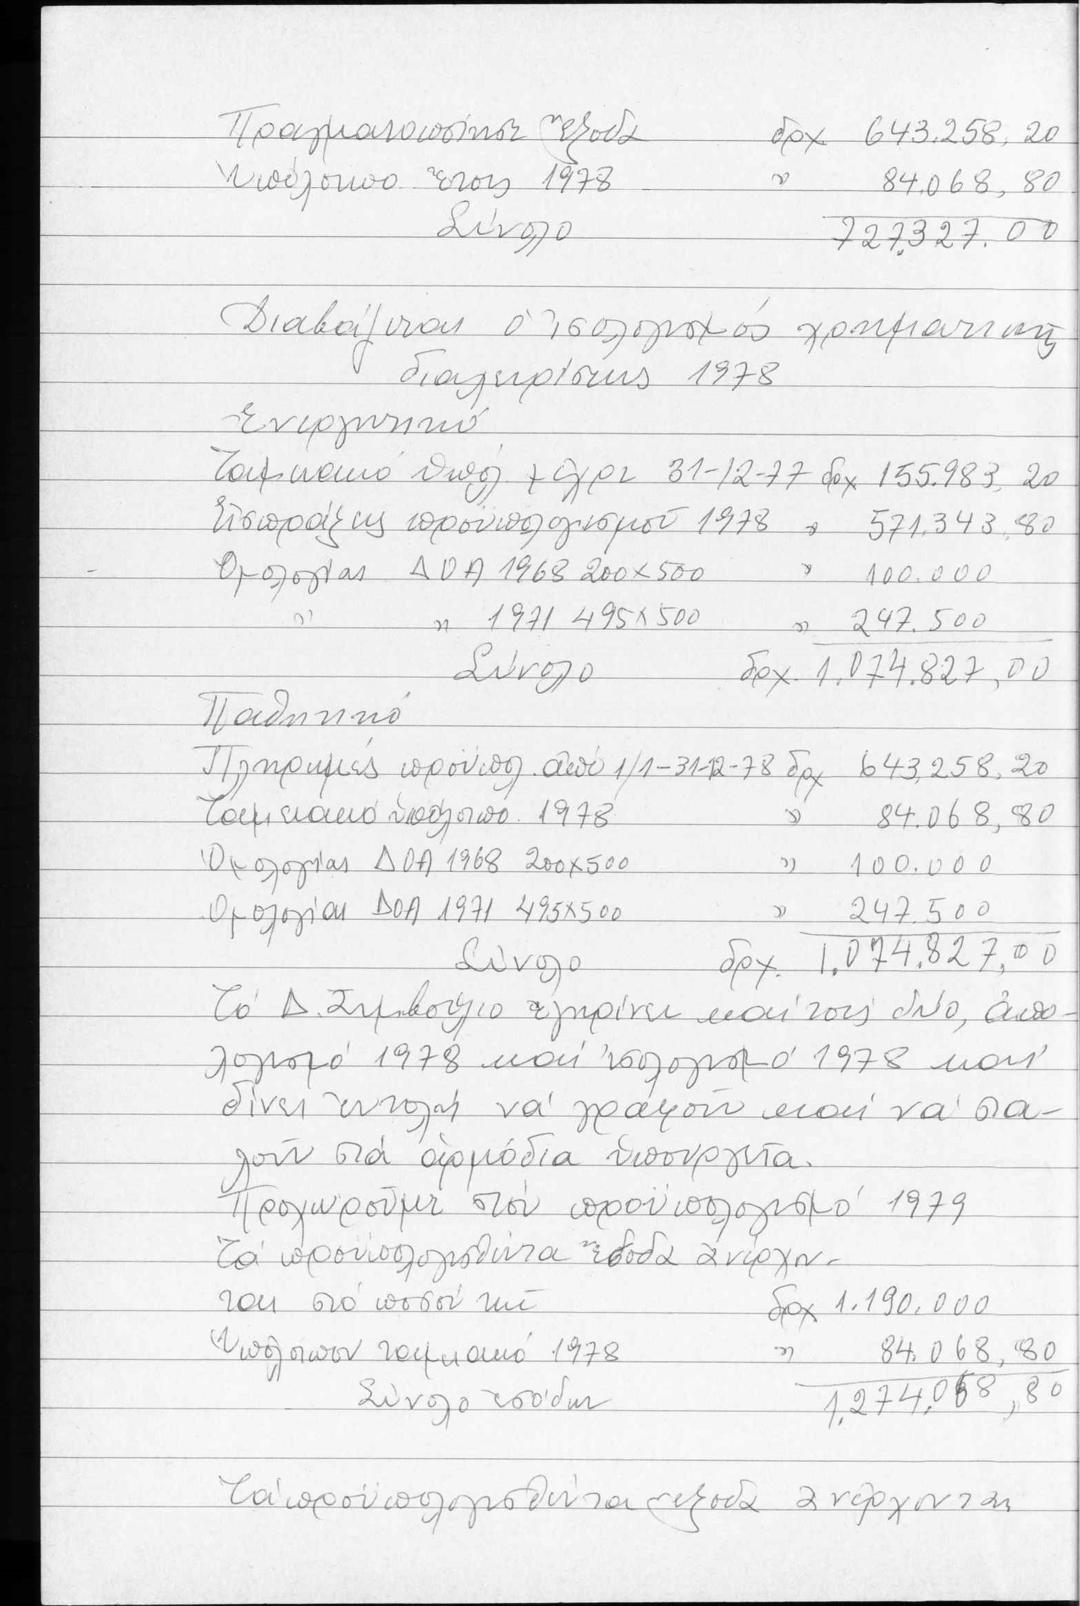 Πραγματοποίησε ἔξοδα δρχ 643.258,20
Ὑπόλοιπο ἔτους 1978 " 84.068,80
Σύνολο 727.327.00
Διαβάζεται ὁ ἰσολογισμός χρηματικῆς
διαχειρίσεως 1978
Ἐνεργητικό
Ταμειακό ὑπόλ μέχρι 31-12-77 δρχ 155.983,20
Εἰσπράξεις προϋπολογισμοῦ 1978 " 571.343,80
Ὁμολογίαι ΔΟΑ 1968 200×500 " 100.000
" " 1971 495×500 " 247.500
Σύνολο δρχ. 1.074.827,00
Παθητικό
Πληρωμές προϋπολ. ἀπό 1/1-31-12-78 δρχ 643,258,20
Ταμειακό ὑπόλοιπο 1978 " 84.068,80
Ὁμολογίαι ΔΟΑ 1968 200×500 " 100.000
Ὁμολογίαι ΔΟΑ 1971 495×500 " 247.500
Σύνολο δρχ. 1.074.827,00
Τό Δ. Συμβούλιο ἐγκρίνει καί τούς δύο, ἀπο-
λογισμό 1978 καί ἰσολογισμό 1978 καί
δίνει ἐντολή νά γραφοῦν καί νά στα-
λοῦν στά ἁρμόδια ὑπουργεῖα.
Προχωροῦμε στόν προϋπολογισμό 1979
Τά προϋπολογισθέντα ἔσοδα ἀνέρχον-
ται στό ποσόν τῶν δρχ 1.190.000
Ὑπόλοιπον ταμειακό 1978 " 84.068,80
Σύνολο ἐσόδων 1.274.068,80
Τά προϋπολογισθέντα ἔξοδα ἀνέρχονται